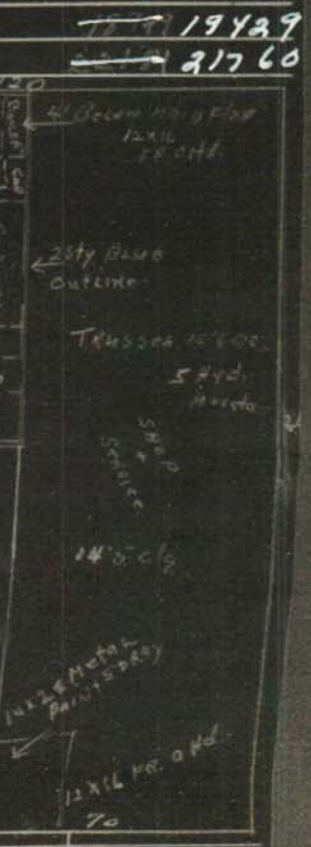 19429
21760
20
4' Below Main Floor
12X16
FR. O Hd.
2 Sty Blue
Outline
Trusses
5 Hyd.
Hoists
Shop
+
Service
14'5" clg
14x28 Metal
Paint Spray
12X16 FR. O Hd.
70